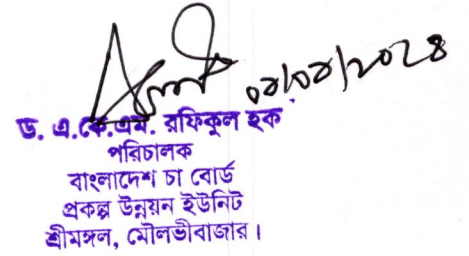 ০৪/০৪/২০২৪
ড. এ.কে.এম. রফিকুল হক
পরিচালক
বাংলাদেশ চা বোর্ড
প্রকল্প উন্নয়ন ইউনিট
শ্রীমঙ্গল, মৌলভীবাজার।